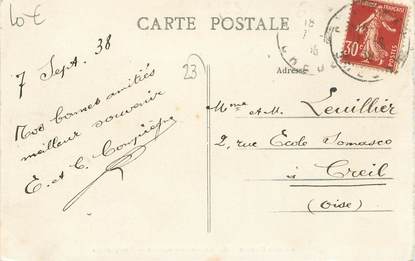 10 €
CARTE POSTALE
FRANÇAISE
30c
7 Sept. 38
23
Adresse
Nos bonnes amitiés
meilleur souvenir
E. et C.
Mme et M. Leuillier
2, rue École Somasco
à Creil
(Oise)